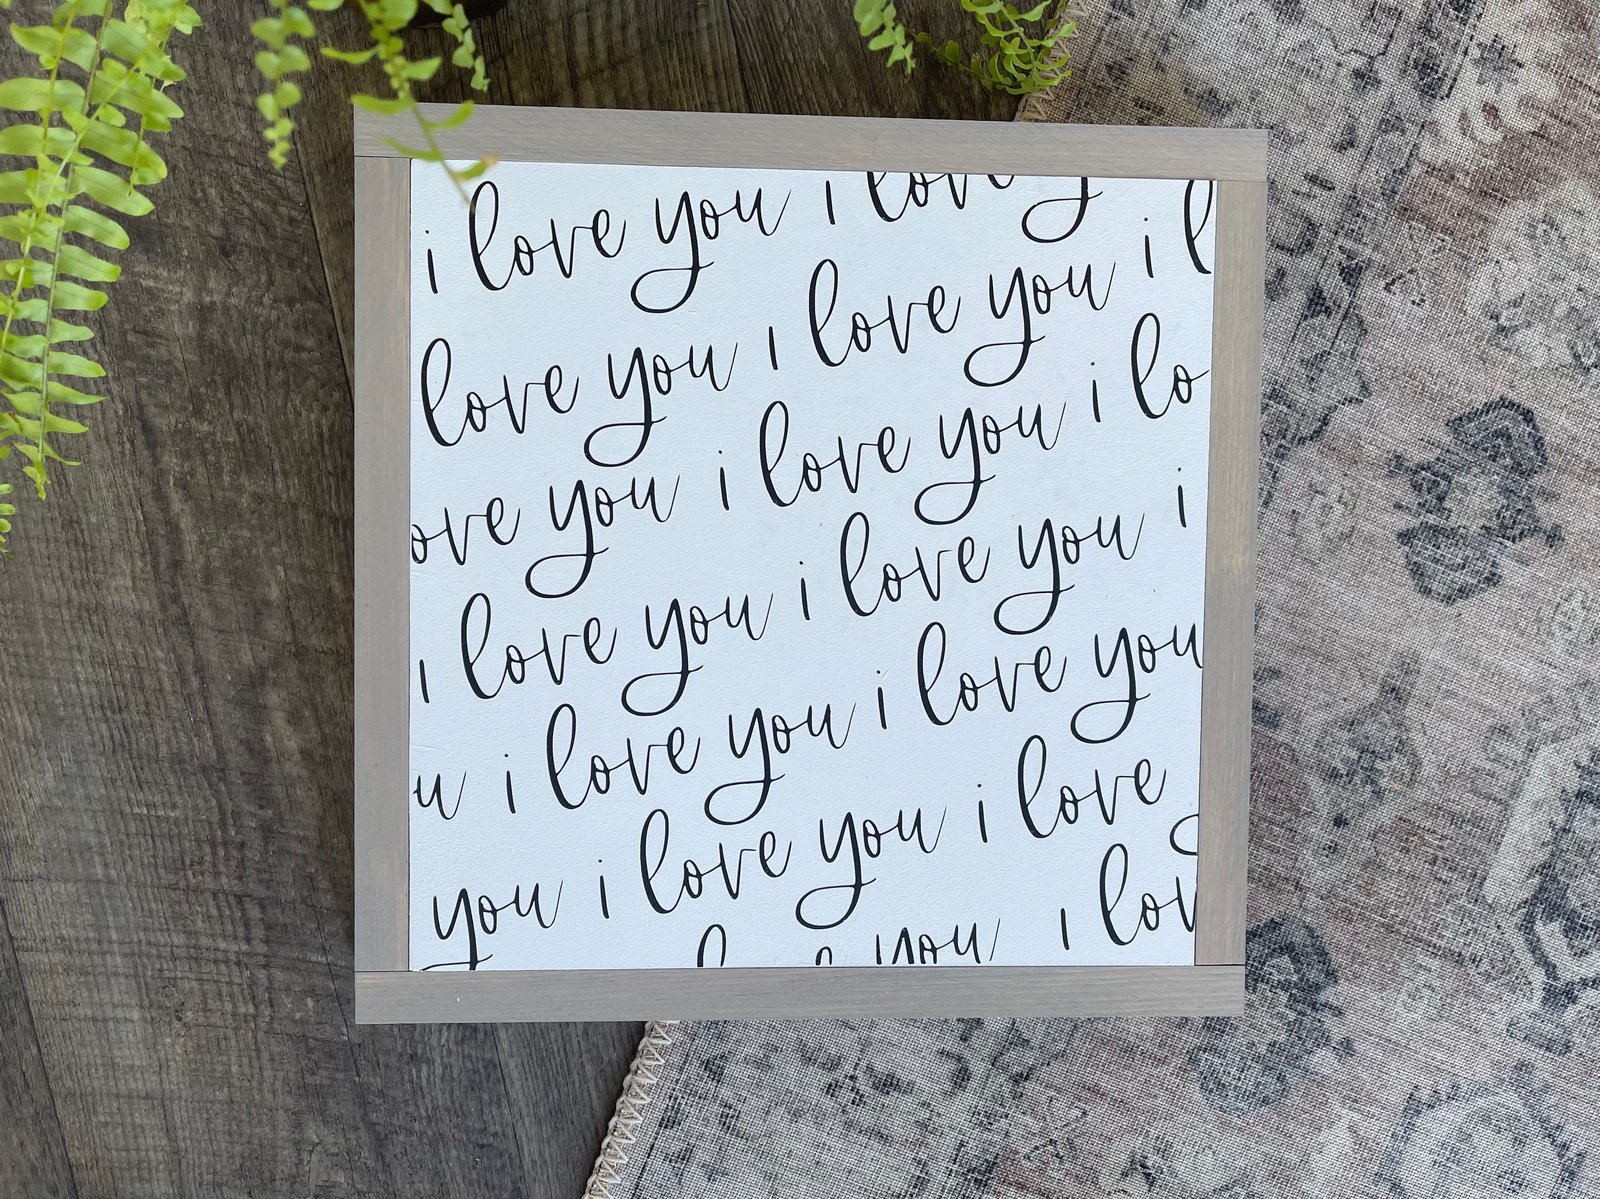 i love you i love y
love you i love you i l
ove you i love you i lo
i love you i love you i
u i love you i love you
you i love you i love
you i lov